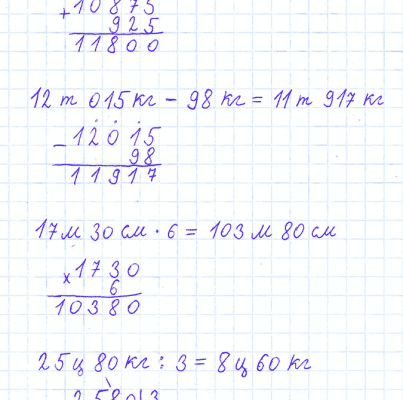 +10875
925
11800
12 т 015 кг - 98 кг = 11 т 917 кг
-12015
98
11917
17 м 30 см · 6 = 103 м 80 см
×1730
6
10380
25 ц 80 кг : 3 = 8 ц 60 кг
2580|3